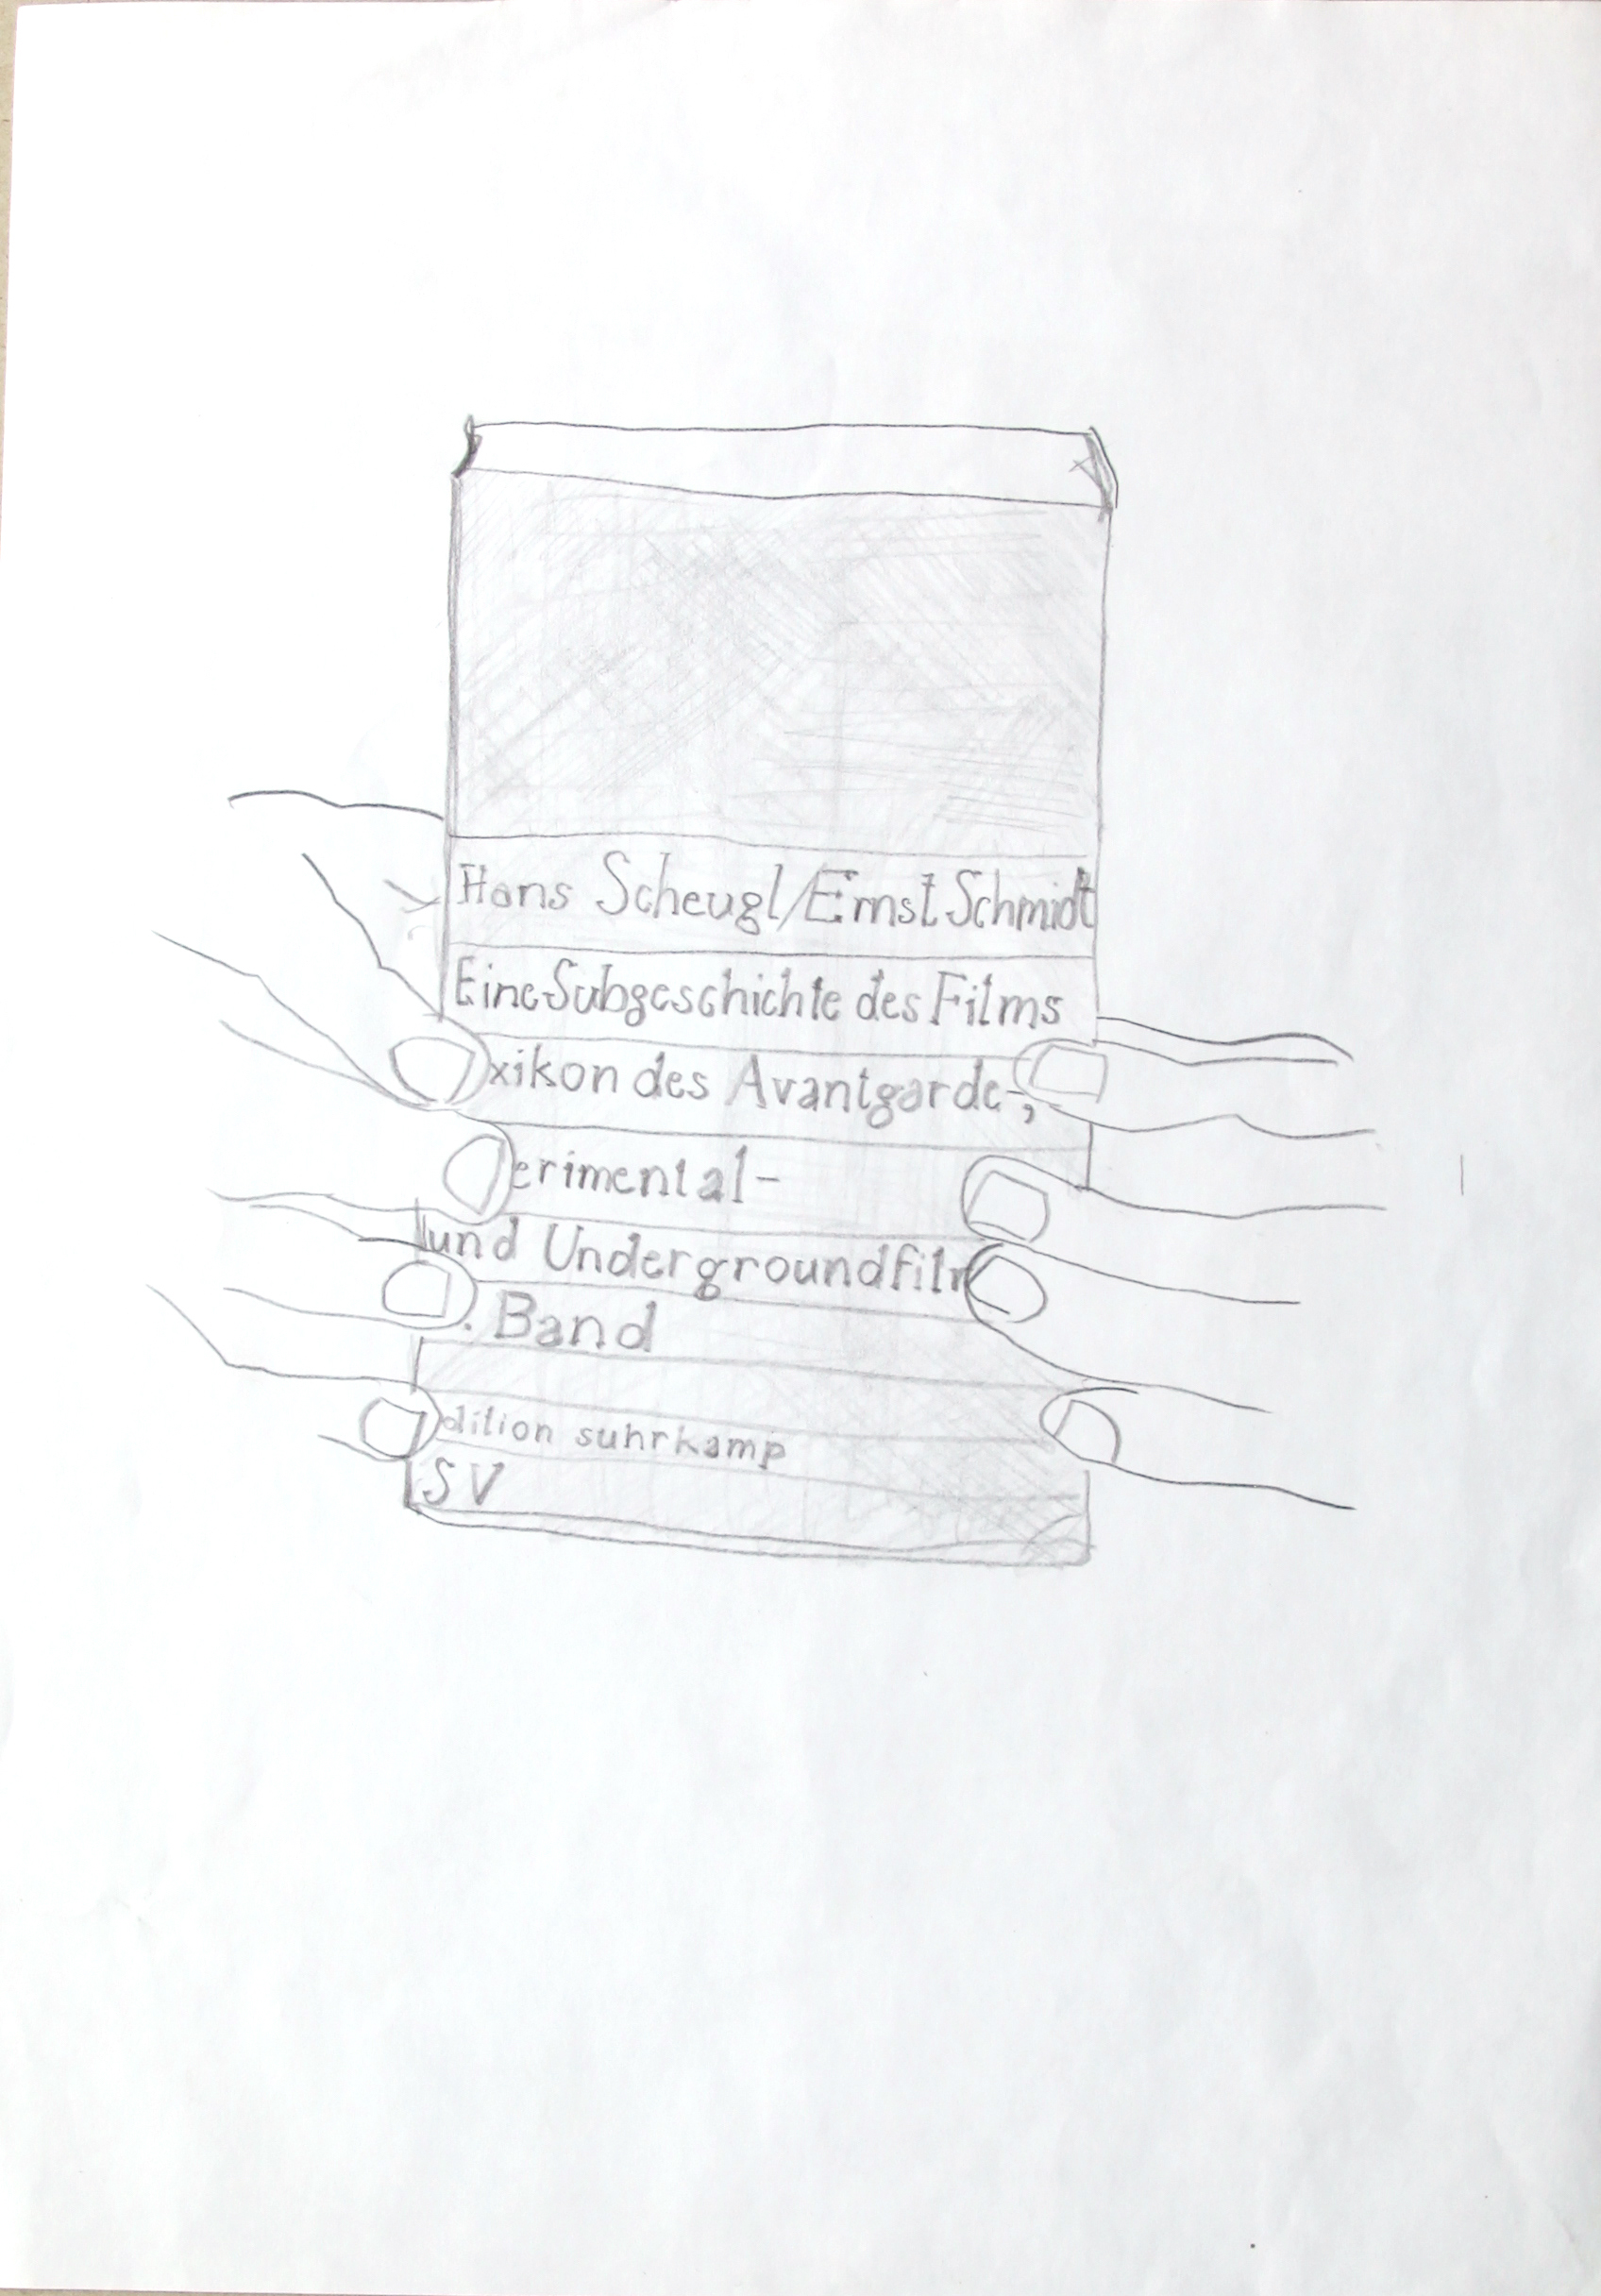 Hans Scheugl/Ernst Schmidt
Eine Subgeschichte des Films
xikon des Avantgarde-,
erimental-
und Undergroundfilm
. Band
dition suhrkamp
SV